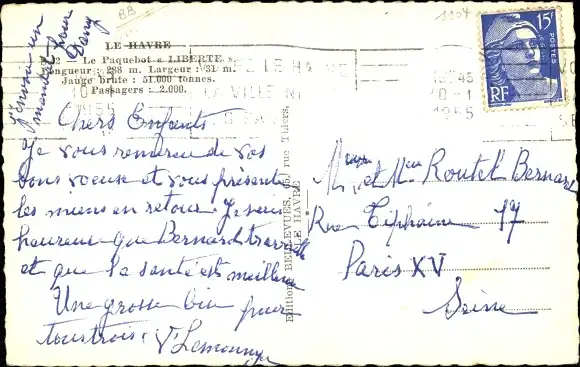 1107
BB
J'envoie un
mandat pour
Dany
LE HAVRE
Le Paquebot « LIBERTE »
Longueur : 288 m. Largeur : 31 m.
Jauge brute : 51.000 tonnes.
Passagers : 2.000.
15F
POSTES
RF
LE HAVRE
LA VILLE N
10-1
1955
10-1
1955
Chers Enfants
Je vous remercie de vos
bons voeux et vous présente
les miens en retour. Je suis
heureux que Bernard travaille
et que la santé est meilleure
Une grosse bise pour
tous trois.
Editions BELLEVUES, rue Thiers, LE HAVRE
et Mme Routel Bernard
Rue Tiphaine 17
Paris XV
Seine